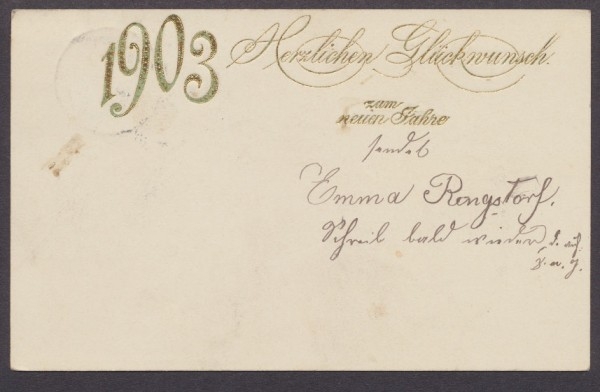 1903 Herzlichen Glückwunsch.
zum
neuen Jahre
sendet
Emma Rengstorf.
Schreib bald wieder